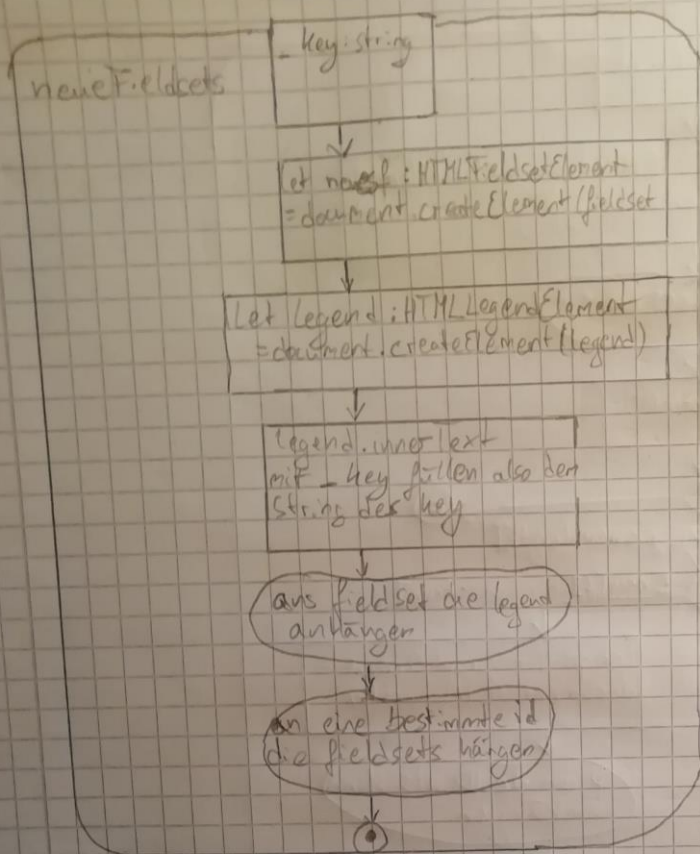 _key:string
neueFieldsets
let : HTMLFieldsetElement
=document.createElement(fieldset
Let legend:HTMLLegendElement
=document.createElement(legend)
legend.innerText
mit _key füllen also dem
String des key
ans fieldset die legend
anhängen
an eine bestimmte id
die fieldsets hängen